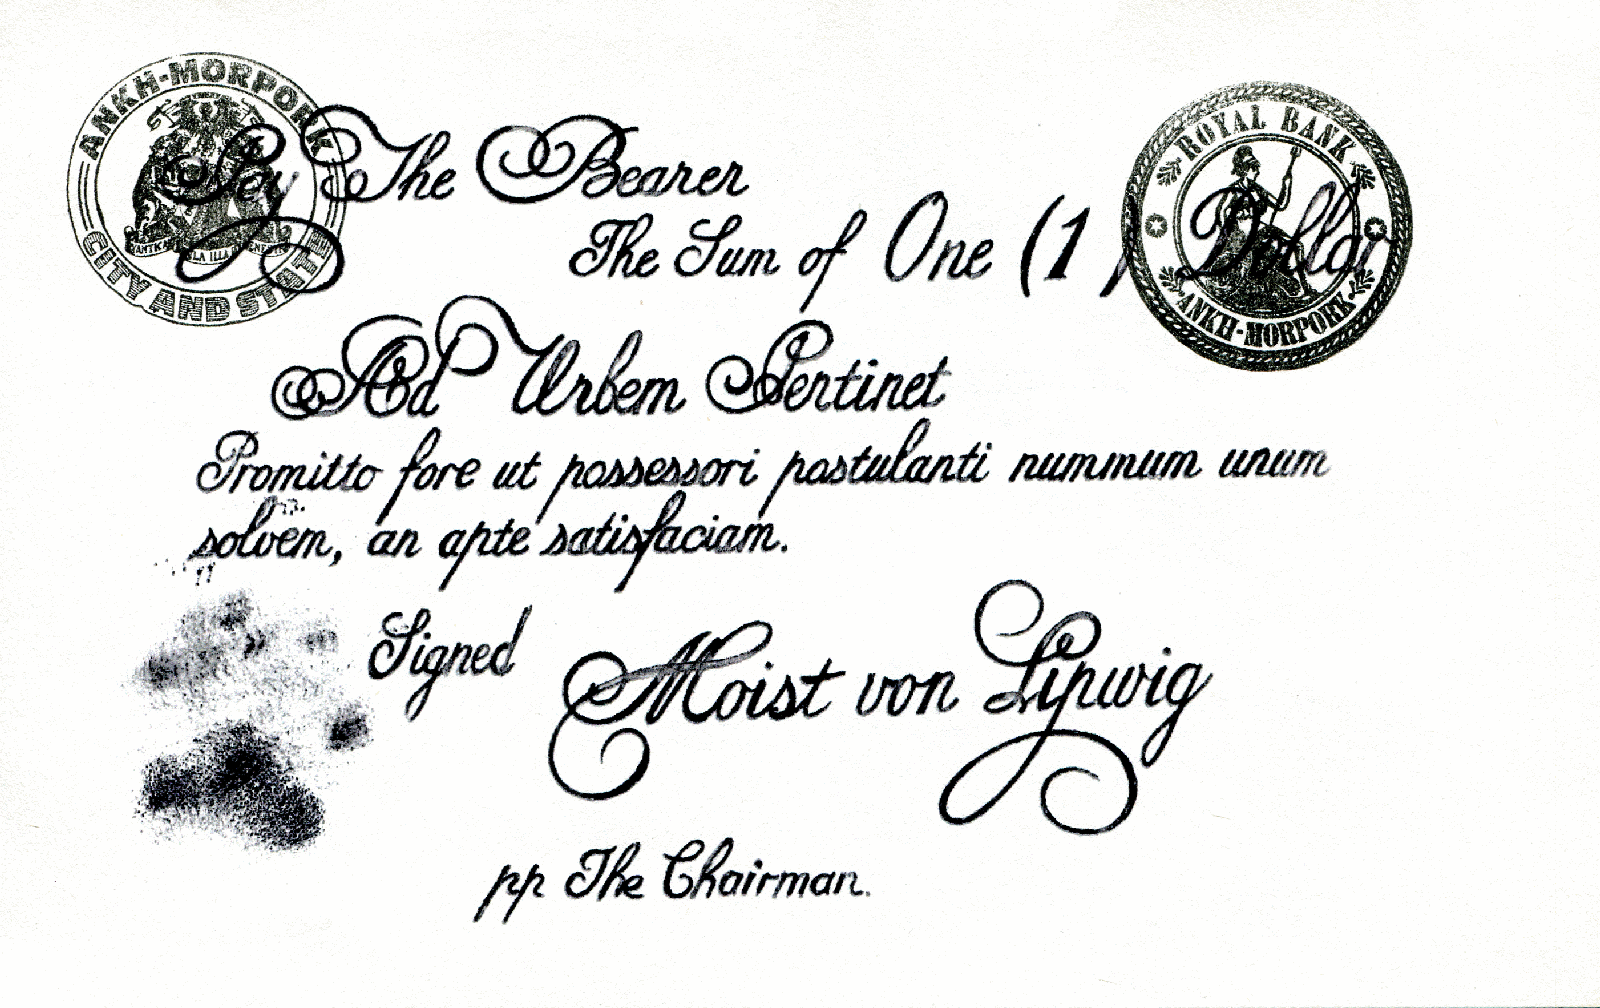 ANKH-MORPORK
CITY AND STATE
Pay The Bearer
ROYAL BANK
ANKH-MORPORK
The Sum of One (1) Dollar
Ad Urbem Pertinet
Promitto fore ut possessori postulanti nummum unum
solvem, an apte satisfaciam.
Signed Moist von Lipwig
pp The Chairman.